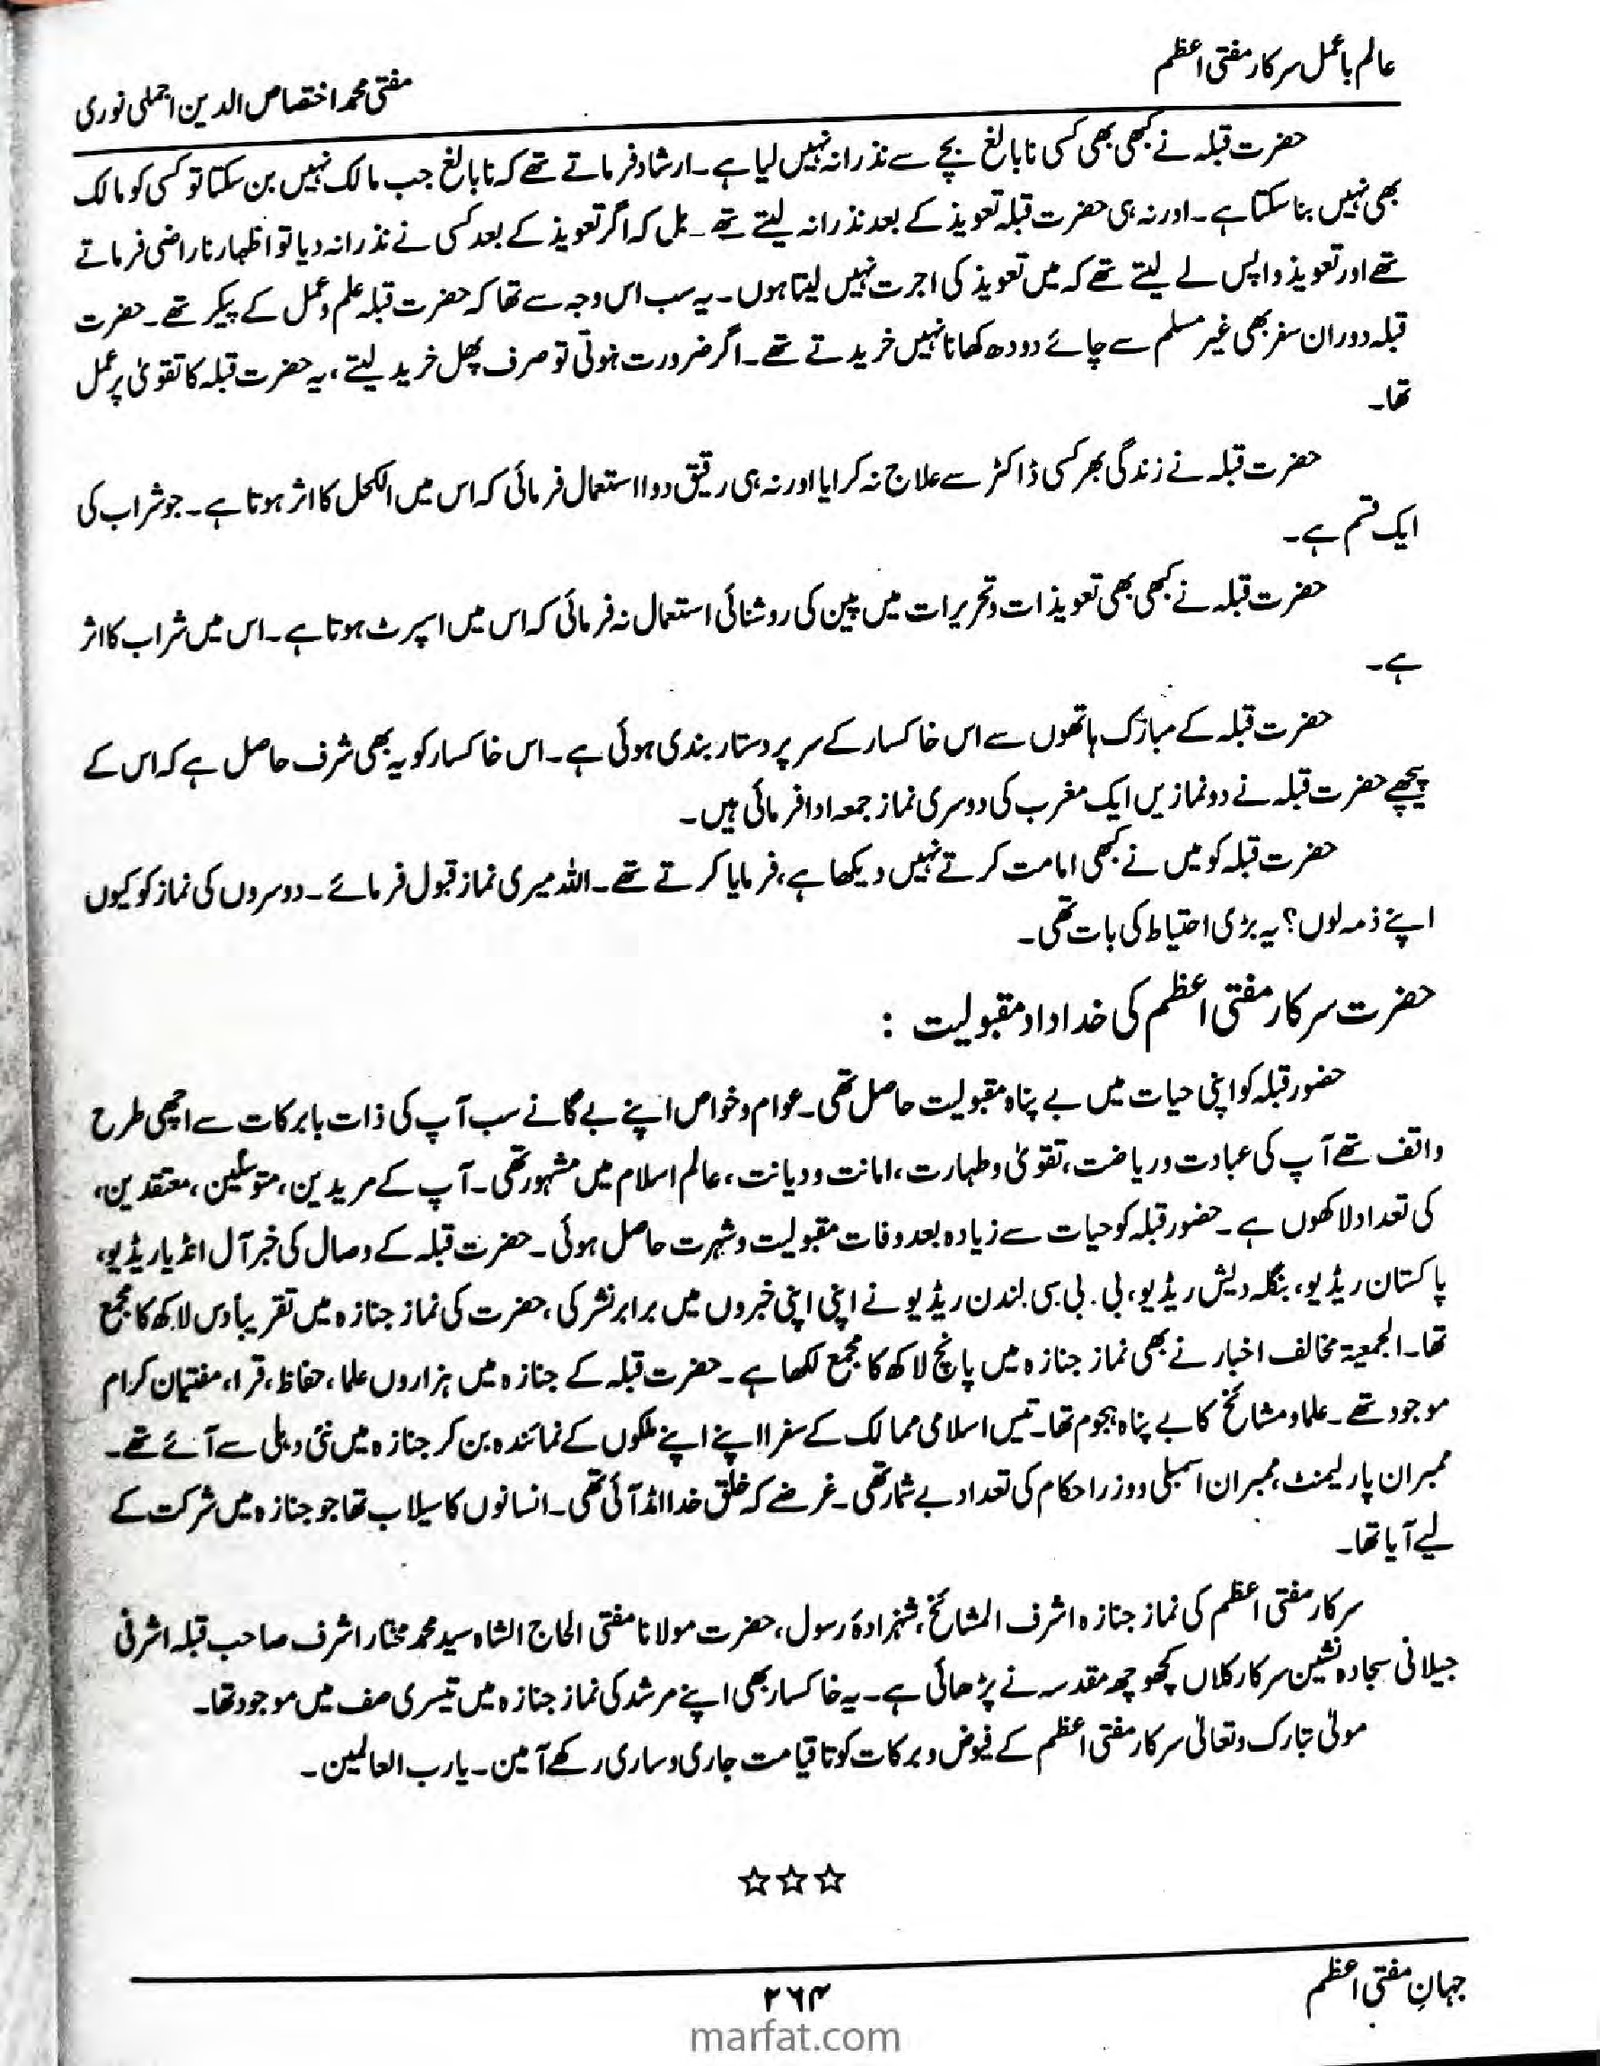 عالم باعمل سرکار مفتی اعظم
مفتی محمد اختصاص الدین اجملی نوری
حضرت قبلہ نے کبھی بھی کسی نابالغ بچے سے نذرانہ نہیں لیا ہے۔ ارشاد فرماتے تھے کہ نابالغ جب مالک نہیں بن سکتا تو کسی کو مالک
بھی نہیں بنا سکتا ہے۔ اور نہ ہی حضرت قبلہ تعویذ کے بعد نذرانہ لیتے تھے۔ بل کہ اگر تعویذ کے بعد کسی نے نذرانہ دیا تو اظہار ناراضی فرماتے
تھے اور تعویذ واپس لے لیتے تھے کہ میں تعویذ کی اجرت نہیں لیتا ہوں۔ یہ سب اس وجہ سے تھا کہ حضرت قبلہ علم و عمل کے پیکر تھے۔ حضرت
قبلہ دوران سفر بھی غیر مسلم سے چائے دودھ کھانا نہیں خریدتے تھے۔ اگر ضرورت ہوتی تو صرف پھل خرید لیتے، یہ حضرت قبلہ کا تقویٰ پر عمل
تھا۔
حضرت قبلہ نے زندگی بھر کسی ڈاکٹر سے علاج نہ کرایا اور نہ ہی رقیق دوا استعمال فرمائی کہ اس میں الکحل کا اثر ہوتا ہے۔ جو شراب کی
ایک قسم ہے۔
حضرت قبلہ نے کبھی بھی تعویذات و تحریرات میں پین کی روشنائی استعمال نہ فرمائی کہ اس میں اسپرٹ ہوتا ہے۔ اس میں شراب کا اثر
ہے۔
حضرت قبلہ کے مبارک ہاتھوں سے اس خاکسار کے سر پر دستار بندی ہوئی ہے۔ اس خاکسار کو یہ بھی شرف حاصل ہے کہ اس کے
پیچھے حضرت قبلہ نے دو نمازیں ایک مغرب کی دوسری نماز جمعہ ادا فرمائی ہیں۔
حضرت قبلہ کو میں نے کبھی امامت کرتے نہیں دیکھا ہے، فرمایا کرتے تھے۔ اللہ میری نماز قبول فرمائے۔ دوسروں کی نماز کو کیوں
اپنے ذمہ لوں؟ یہ بڑی احتیاط کی بات تھی۔
حضرت سرکار مفتی اعظم کی خداداد مقبولیت :
حضور قبلہ کو اپنی حیات میں بے پناہ مقبولیت حاصل تھی۔ عوام و خواص اپنے بے گانے سب آپ کی ذات بابرکات سے اچھی طرح
واقف تھے آپ کی عبادت و ریاضت، تقویٰ و طہارت، امانت و دیانت، عالم اسلام میں مشہور تھی۔ آپ کے مریدین، متوسلین، معتقدین،
کی تعداد لاکھوں ہے۔ حضور قبلہ کو حیات سے زیادہ بعد وفات مقبولیت و شہرت حاصل ہوئی۔ حضرت قبلہ کے وصال کی خبر آل انڈیا ریڈیو،
پاکستان ریڈیو، بنگلہ دیش ریڈیو، بی۔ بی۔ سی لندن ریڈیو نے اپنی اپنی خبروں میں برابر نشر کی، حضرت کی نماز جنازہ میں تقریباً دس لاکھ کا مجمع
تھا۔ الجمعیۃ مخالف اخبار نے بھی نماز جنازہ میں پانچ لاکھ کا مجمع لکھا ہے۔ حضرت قبلہ کے جنازہ میں ہزاروں علما، حفاظ، قرا، مفتیان کرام
موجود تھے۔ علما و مشائخ کا بے پناہ ہجوم تھا۔ تیس اسلامی ممالک کے سفرا اپنے اپنے ملکوں کے نمائندہ بن کر جنازہ میں نئی دہلی سے آئے تھے۔
ممبران پارلیمنٹ، ممبران اسمبلی و وزرا حکام کی تعداد بے شمار تھی۔ غرضے کہ خلق خدا امڈ آئی تھی۔ انسانوں کا سیلاب تھا جو جنازہ میں شرکت کے
لیے آیا تھا۔
سرکار مفتی اعظم کی نماز جنازہ اشرف المشائخ، شہزادۂ رسول، حضرت مولانا مفتی الحاج الشاہ سید محمد مختار اشرف صاحب قبلہ اشرفی
جیلانی سجادہ نشین سرکار کلاں کچھوچھہ مقدسہ نے پڑھائی ہے۔ یہ خاکسار بھی اپنے مرشد کی نماز جنازہ میں تیسری صف میں موجود تھا۔
مولیٰ تبارک و تعالیٰ سرکار مفتی اعظم کے فیوض و برکات کو تا قیامت جاری و ساری رکھے آمین۔ یا رب العالمین۔
☆☆☆
جہانِ مفتی اعظم
۲۶۴
marfat.com